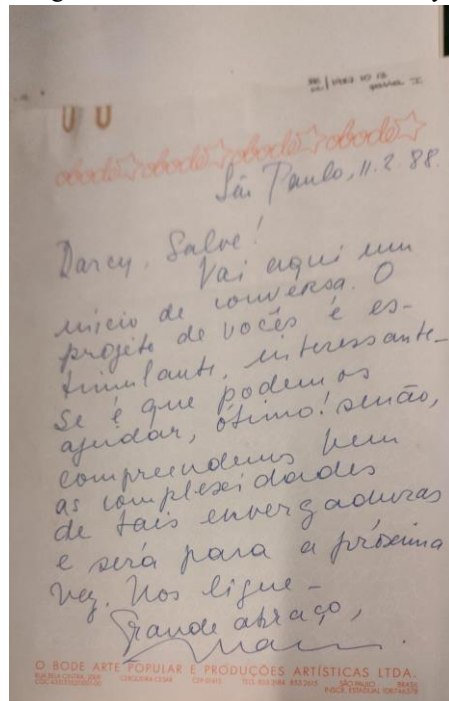 obode obode obode obode
São Paulo, 11.2.88.
Darcy. Salve!
Vai aqui um
início de conversa. O
projeto de vocês é es-
timulante, interessante-
Se é que podemos
ajudar, ótimo! senão,
compreendemos bem
as complexidades
de tais envergaduras
e será para a próxima
vez. Nos ligue-
Grande abraço,
O BODE ARTE POPULAR E PRODUÇÕES ARTÍSTICAS LTDA.
CERQUEIRA CESAR SÃO PAULO BRASIL